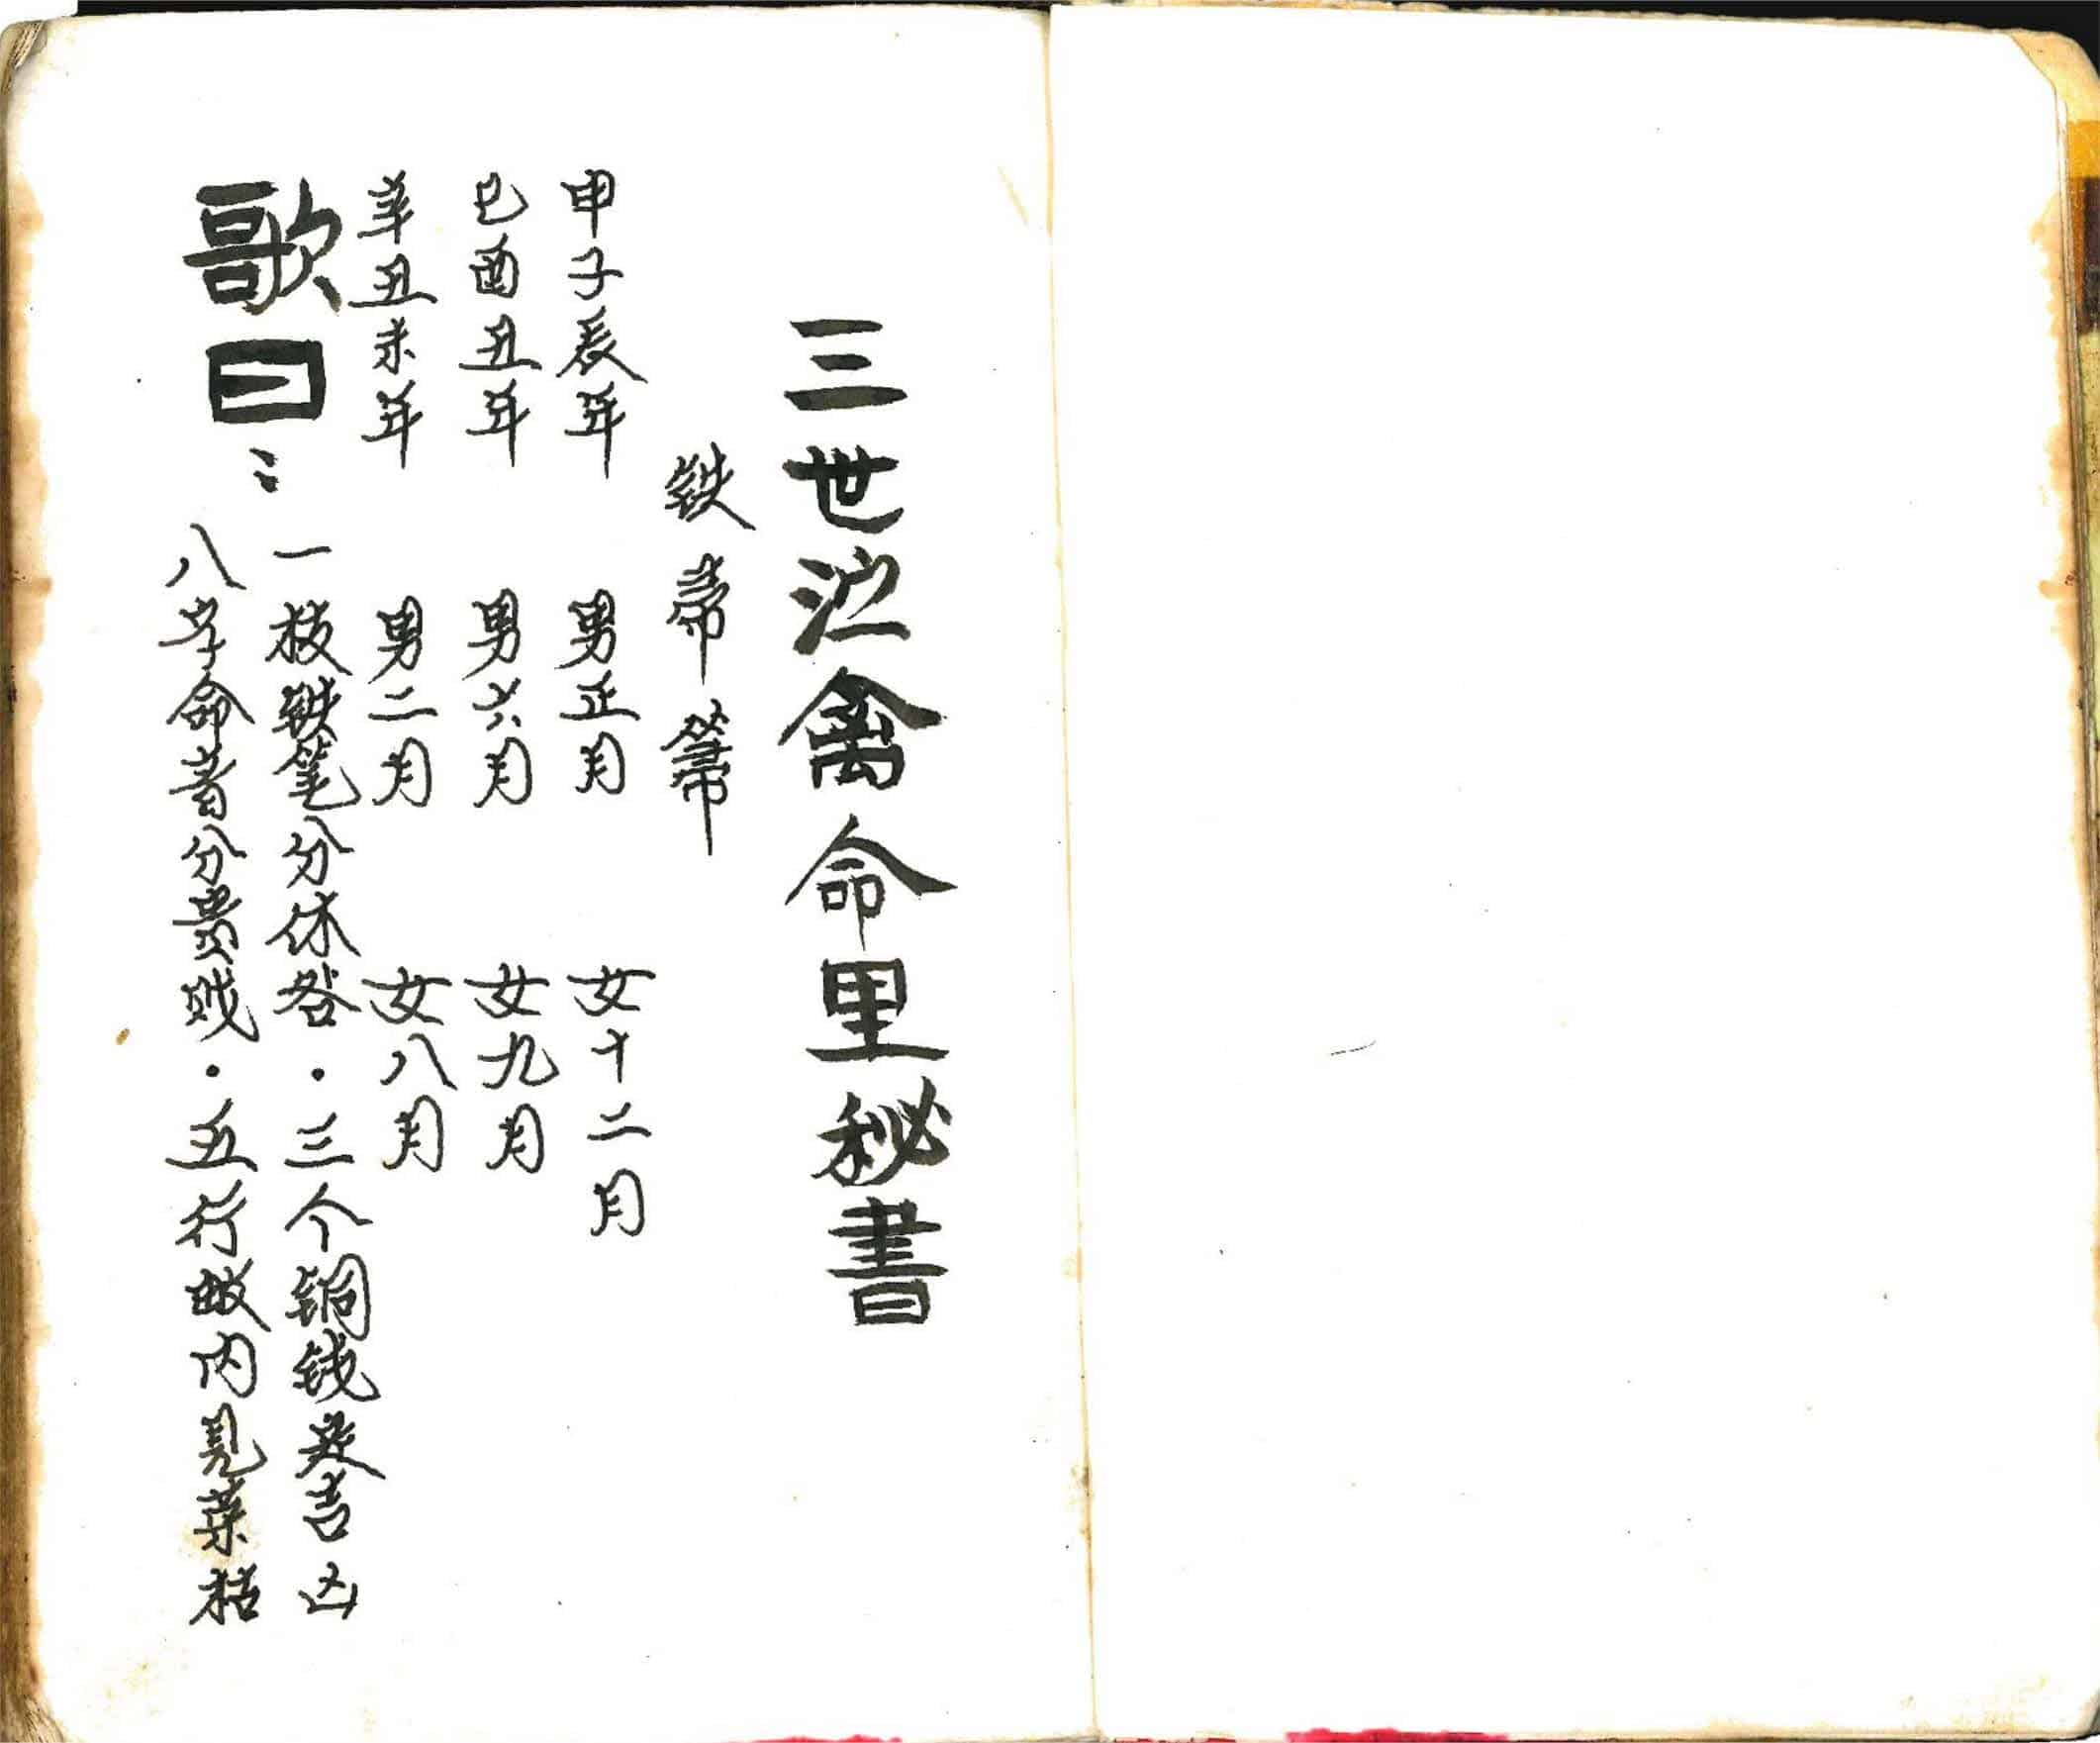 三世泟禽命里秘書
铁帚篅
申子辰年 男正月 女十二月
巳酉丑年 男六月 女九月
羊丑未年 男二月 女八月
歌曰:
一枝铁笔分休咎·三个铜钱定吉凶
八字命者分贵贱·五行故内見菜枯